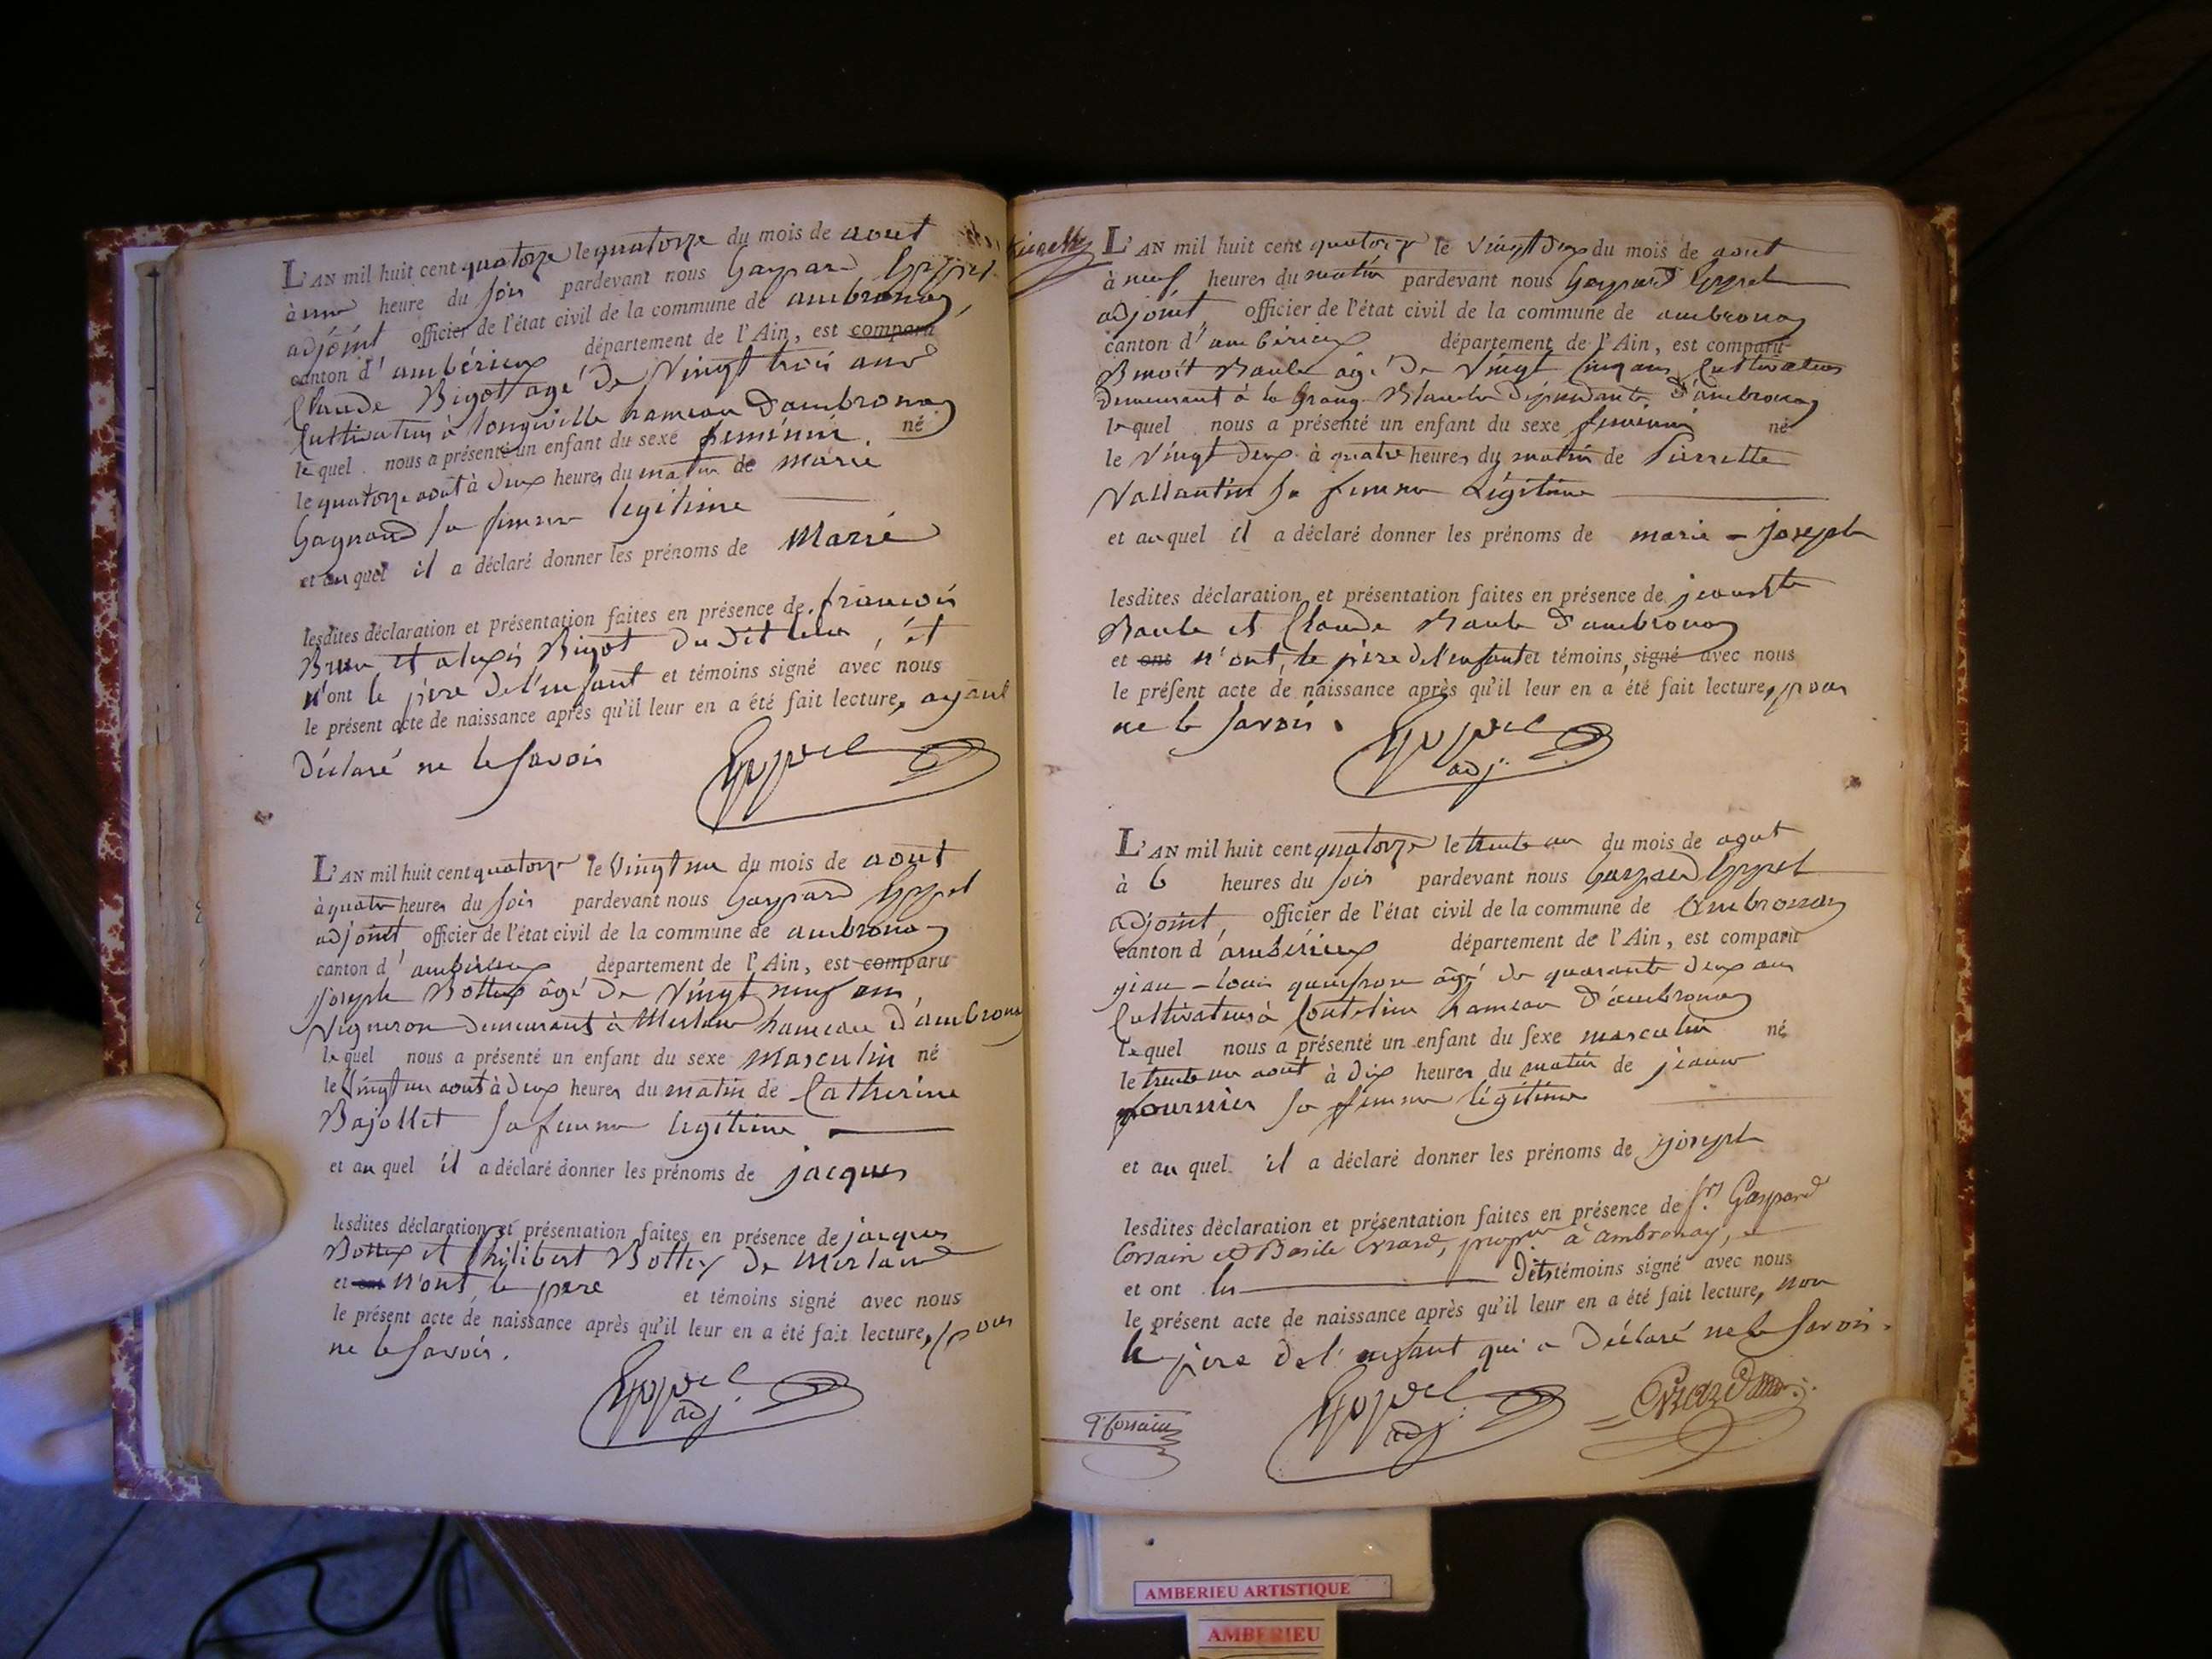 L'AN mil huit cent quatorze le quatorze du mois de aout
à une heure du soir pardevant nous Gaspard
adjoint officier de l'état civil de la commune de ambronay
canton d'ambérieux département de l'Ain, est comparu
Claude Bigot agé de Vingt trois ans
Cultivateur à longeville hameau d'ambronay
lequel nous a présenté un enfant du sexe feminin né
le quatorze aout à deux heures du matin de Marie
Gagnand sa femme legitime
et au quel il a déclaré donner les prénoms de Marie
lesdites déclaration et présentation faites en présence de francois
Brun et alexis Bigot du dit lieu, et
n'ont le père de l'enfant et témoins signé avec nous
le présent acte de naissance après qu'il leur en a été fait lecture, ayant
déclaré ne le savoir
L'AN mil huit cent quatorze le Vingt un du mois de aout
à quatre heures du soir pardevant nous Gaspard
adjoint officier de l'état civil de la commune de ambronay
canton d'ambérieux département de l'Ain, est comparu
joseph Bottex âgé de Vingt neuf ans
Vigneron demeurant à Merland hameau d'ambronay
lequel nous a présenté un enfant du sexe masculin né
le Vingt un aout à deux heures du matin de Catherine
Bajollet sa femme legitime
et au quel il a déclaré donner les prénoms de jacques
lesdites déclaration et présentation faites en présence de jacques
Bottex et philibert Bottex de Merland
et ont n'ont le pere et témoins signé avec nous
le présent acte de naissance après qu'il leur en a été fait lecture, pour
ne le savoir.
adj.
L'AN mil huit cent quatorze le Vingt deux du mois de aout
à neuf heures du matin pardevant nous Gaspard
adjoint officier de l'état civil de la commune de ambronay
canton d'ambérieux département de l'Ain, est comparu
Benoit agé de Vingt cinq ans Cultivateur
demeurant à la Grange dépendante d'ambronay
lequel nous a présenté un enfant du sexe feminin né
le Vingt deux à quatre heures du matin de Pierrette
Vallantin sa femme Légitime
et au quel il a déclaré donner les prénoms de marie - joseph
lesdites déclaration et présentation faites en présence de
et Claude d'ambronay
et ont n'ont, le père de l'enfant et témoins, signé avec nous
le présent acte de naissance après qu'il leur en a été fait lecture, pour
ne le savoir.
adj.
L'AN mil huit cent quatorze le trente un du mois de aout
à 6 heures du soir pardevant nous Gaspard
adjoint, officier de l'état civil de la commune de Ambronay
canton d'ambérieux département de l'Ain, est comparu
jean-louis âgé de quarante deux ans
Cultivateur à hameau d'ambronay
lequel nous a présenté un enfant du sexe masculin né
le trente un aout à dix heures du matin de jeanne
fournier sa femme légitime
et au quel il a déclaré donner les prénoms de joseph
lesdites déclaration et présentation faites en présence de Srs Gaspard
Corsain et Basile Evrard, propres à ambronay,
et ont les dits témoins signé avec nous
le présent acte de naissance après qu'il leur en a été fait lecture, non
le père de l'enfant qui a déclaré ne le savoir.
G. Corsain adj. Evrard
AMBERIEU ARTISTIQUE
AMBERIEU